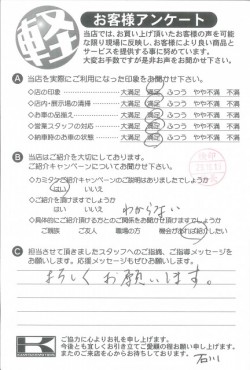 軽 お客様アンケート
当店では、お買い上げ頂いたお客様の声を可能
な限り現場に反映し、お客様により良い商品と
サービスを提供する事に努めています。
大変お手数ですが是非お声をお聞かせ下さい。
A 当店を実際にご利用になった印象をお聞かせ下さい。
◇店の印象 大満足 満足 ふつう やや不満 不満
◇店内・展示場の清掃 大満足 満足 ふつう やや不満 不満
◇お車の品揃え 大満足 満足 ふつう やや不満 不満
◇営業スタッフの対応 大満足 満足 ふつう やや不満 不満
◇納車時のお車の状態 大満足 満足 ふつう やや不満 不満
B 当店はご紹介を大切にしております。
ご紹介キャンペーンについてお聞かせ下さい。
◇カミタケご紹介キャンペーンのご説明はありましたでしょうか
はい いいえ
◇ご紹介を頂けますでしょうか
はい いいえ わからない
◇具体的にご紹介頂ける方とのご関係をお聞かせ頂けますでしょうか
ご親族 ご友人 職場の方 機会があれば紹介したい
C 担当させて頂きましたスタッフへのご指摘、ご指導メッセージを
お願いします。応援メッセージもぜひお願いします。
よろしくお願いします。
K
ご協力に心よりお礼を申し上げます。
今後とも宜しくお引き立てご愛顧の程お願い申し上げます。
またのご来店を心からお待ちしております。
石川